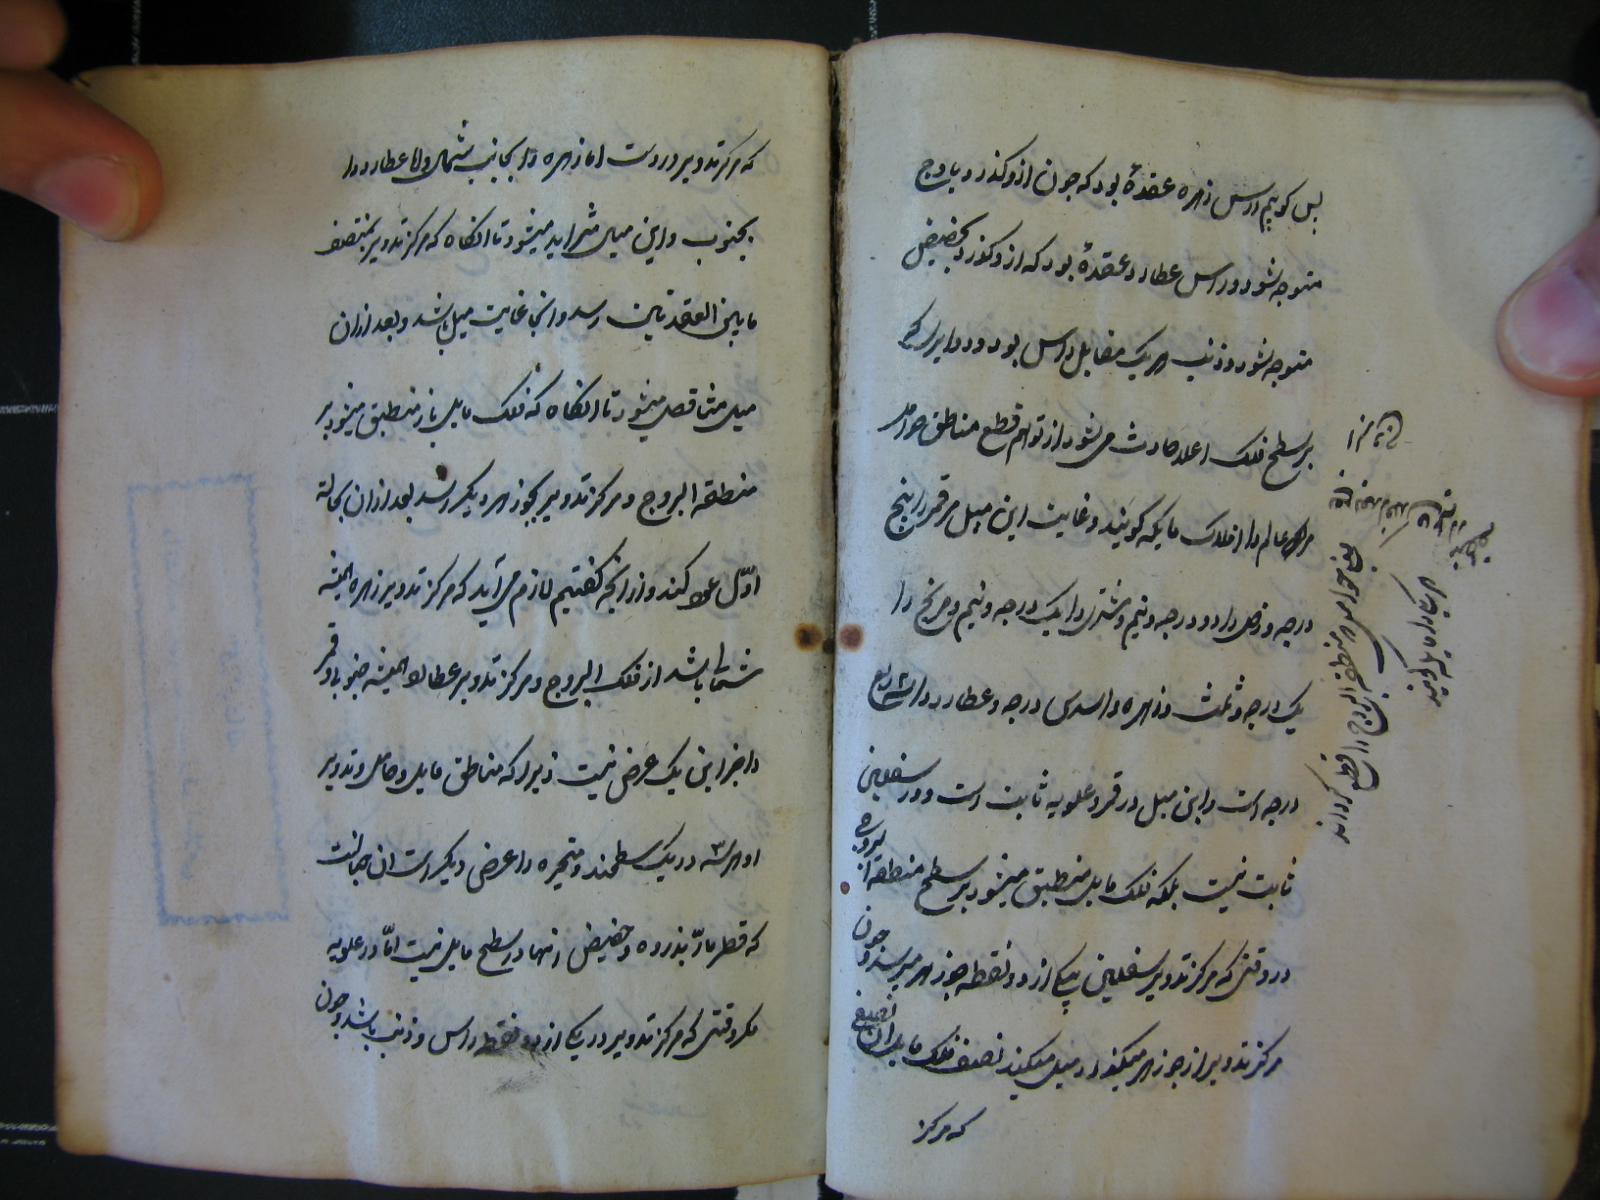 پس کوییم راس زهره عقدهٔ بود که چون ازو کذرد باوج
متوجه شود و راس عطارد عقدهٔ بود که ازو کذرد بحضیض
متوجه شود و ذنب هر یک مقابل راس بود و دوایری که
بر سطح فلک اعلا حادث می شود از توهم قطع مناطق حوامل
مر عالم را افلاک مایله کویند و غایت این میل مر قمر را پنج
درجه و زحل را دو درجه و نیم و مشتری را یک درجه و نیم و مریخ را
یک درجه و ثلث و زهره را سدس درجه و عطارد را سه ربع
درجه است و این میل در قمر و علویه ثابت است و در سفلیین
ثابت نیست بلکه فلک مایل منطبق میشود بر سطح منطقة البروج
در وقتی که مرکز تدویر سفلیین بیکی از دو نقطه جوزهر میرسد و چون
مرکز تدویر از جوزهر میکذرد میل میکند نصف فلک مایل آن نصفی
که مرکز
یعنی حوامل منطقة البروج را قطع کرده اند
هر یک را مایل کویند
که مرکز تدویر دروست اما زهره را بجانب شمال و اما عطارد را
بجنوب و این میل متزاید میشود تا انکاه که مرکز تدویر بمنتصف
ما بین العقدتین رسد و انجا غایت میل باشد و بعد ازان
میل متناقص میشود تا انکاه که فلک مایل باز منطبق میشود بر
منطقة البروج و مرکز تدویر بجوزهر دیکر رسد بعد ازان بحالة
اوّل عود کند و از انچه کفتیم لازم می آید که مرکز تدویر زهره همیشه
شمالی باشد از فلک البروج و مرکز تدویر عطارد همیشه جنوبی و قمر
را جز این یک عرض نیست زیرا که مناطق مایل و حامل و تدویر
او هر سه در یک سطحند و متحیره را عرض دیکر است ان چنانست
که قطر مارّ بذروه و حضیض اینها در سطح مایل نیست امّا در علویه
مکر وقتی که مرکز تدویر در یکی از دو نقطه راس و ذنب باشد و چون